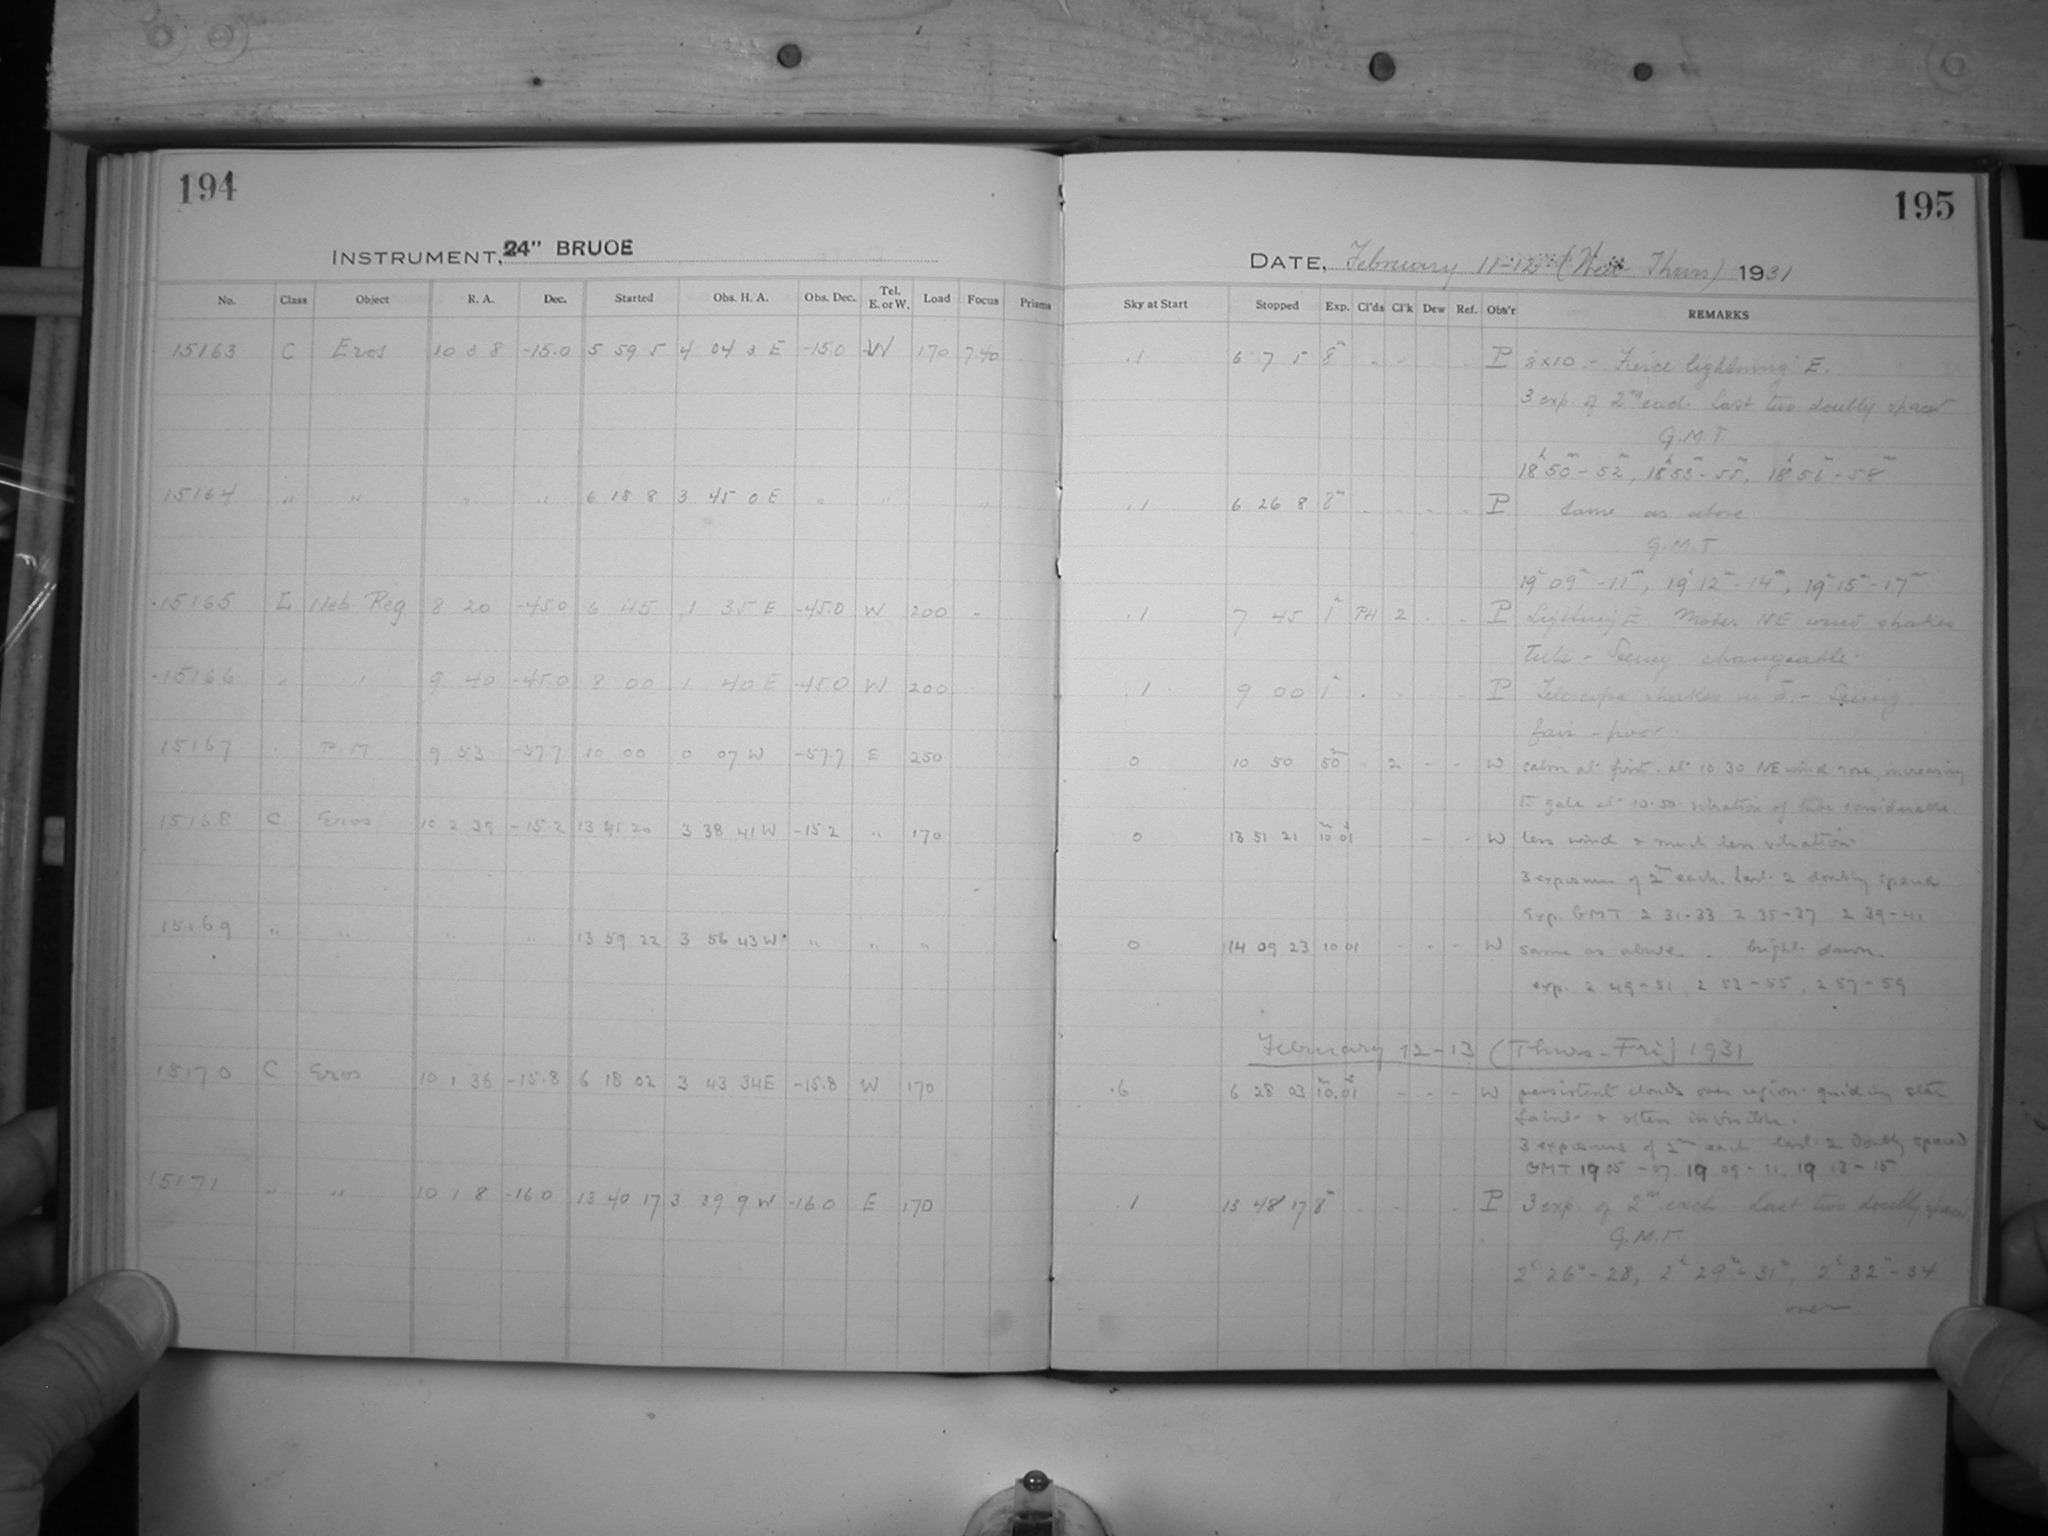 194
INSTRUMENT, 24" BRUCE
No. Class Object R. A. Dec. Started Obs. H. A. Obs. Dec. Tel. E. or W. Load Focus Prisms
15163 C Eros 10 3 8 -15.0 5 59 5 4 04 3 E -15.0 W 170 7.40
15164 " " " " 6 18 8 3 45 0 E " " "
15165 L Neb Reg 8 20 -45.0 6 45 1 35 E -45.0 W 200 -
15166 " " 9 40 -45.0 8 00 1 40 E -45.0 W 200
15167 P M 9 53 -57.7 10 00 0 07 W -57.7 E 250
15168 C Eros 10 2 39 -15.2 13 41 20 3 38 41 W -15.2 " 170
15169 " " " " 13 59 22 3 56 43 W " " "
15170 C Eros 10 1 36 -15.8 6 18 02 3 43 34 E -15.8 W 170
15171 " " 10 1 8 -16.0 13 40 17 3 39 9 W -16.0 E 170
195
DATE, February 11-12 (Wed - Thurs) 1931
Sky at Start Stopped Exp. Cl'ds Cl'k Dew Ref. Obs'r REMARKS
.1 6 7 5 8m - - - - P 8x10 - Fierce lightning E.
3 exp. of 2m each. Last two doubly spaced
G.M.T.
18h 50m - 52m, 18h 53m - 55m, 18h 56m - 58m
.1 6 26 8 8m - - - - P Same as above
G.M.T
19h 09m - 11m, 19h 12m - 14m, 19h 15m - 17m
.1 7 45 1h PH 2 - - P Lightning E NE wind shakes
tube - Seeing changeable
.1 9 00 1h - - - P Telescope shakes - Seeing
fair - poor
0 10 50 50m - 2 - - W calm at first. at 10 30 NE wind rose, increasing
to gale at 10.50 vibration of tube considerable
0 13 51 21 10m 01s - - W less wind & much less vibration
3 exposures of 2m each. Last 2 doubly spaced
Exp. GMT 2 31-33 2 35-37 2 39-41
0 14 09 23 10 01 - - - W same as above. bright dawn.
exp. 2 49-51, 2 53-55, 2 57-59
February 12-13 (Thurs - Fri) 1931
.6 6 28 03 10m.01s - - - W persistent clouds over region. guiding star
faint & often invisible.
3 exposures of 2m each last 2 doubly spaced
GMT 19 05-07. 19 09-11. 19 13-15
.1 13 48 17 8m - - - - P 3 exp. of 2m each Last two doubly spaced
G.M.T.
2h 26m - 28, 2h 29m - 31m, 2h 32m - 34
over